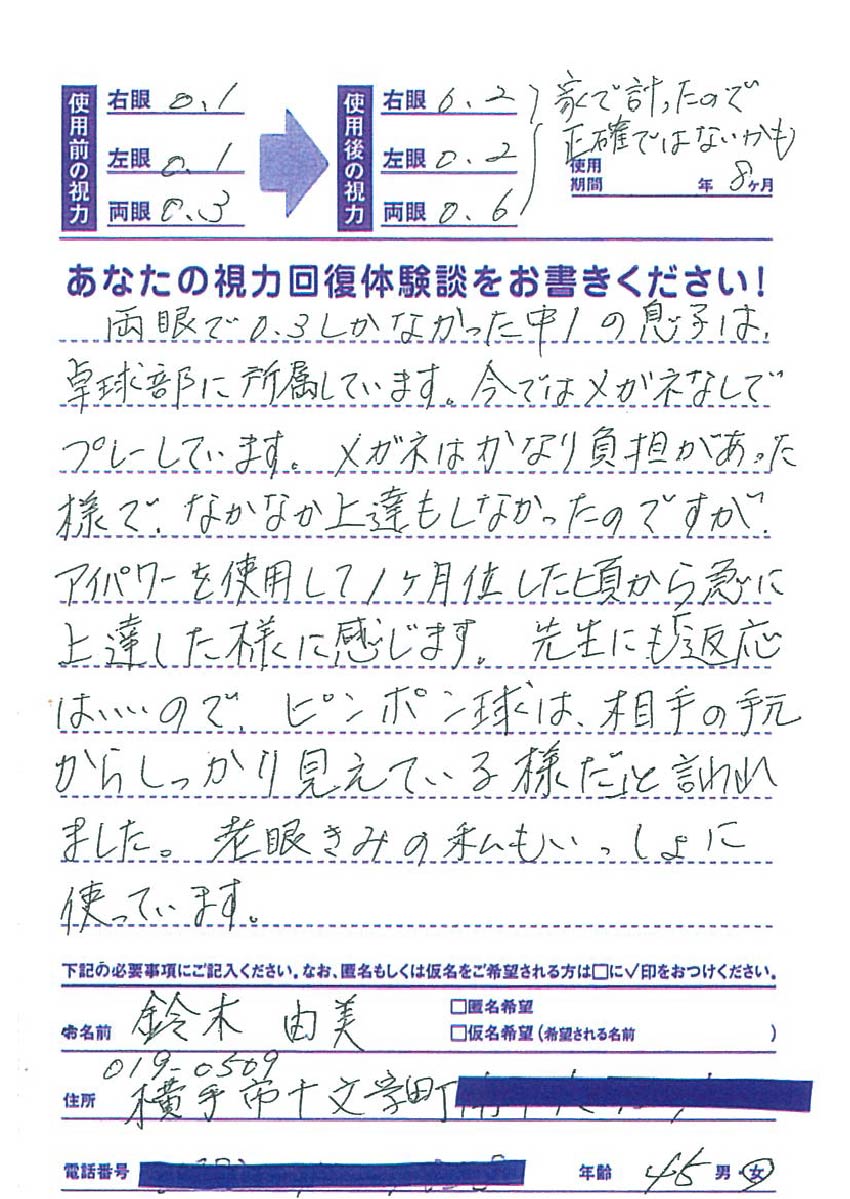 使用前の視力
右眼 0.1
左眼 0.1
両眼 0.3
使用後の視力
右眼 0.2
左眼 0.2
両眼 0.6
家で計ったので
正確ではないかも
使用期間 年 8ヶ月
あなたの視力回復体験談をお書きください!
両眼で0.3しかなかった中1の息子は、
卓球部に所属しています。今ではメガネなしで
プレーしています。メガネはかなり負担があった
様で、なかなか上達もしなかったのですが、
アイパワーを使用して1ヶ月位した頃から急に
上達した様に感じます。先生にも「返応
はいいので、ピンポン球は、相手の手元
からしっかり見えている様だ」と言われ
ました。老眼きみの私もいっしょに
使っています。
下記の必要事項にご記入ください。なお、匿名もしくは仮名をご希望される方は□に✓印をおつけください。
お名前 鈴木 由美
□匿名希望
□仮名希望(希望される名前 )
019-0509
住所 横手市十文字町
電話番号
年齢 45 男・女